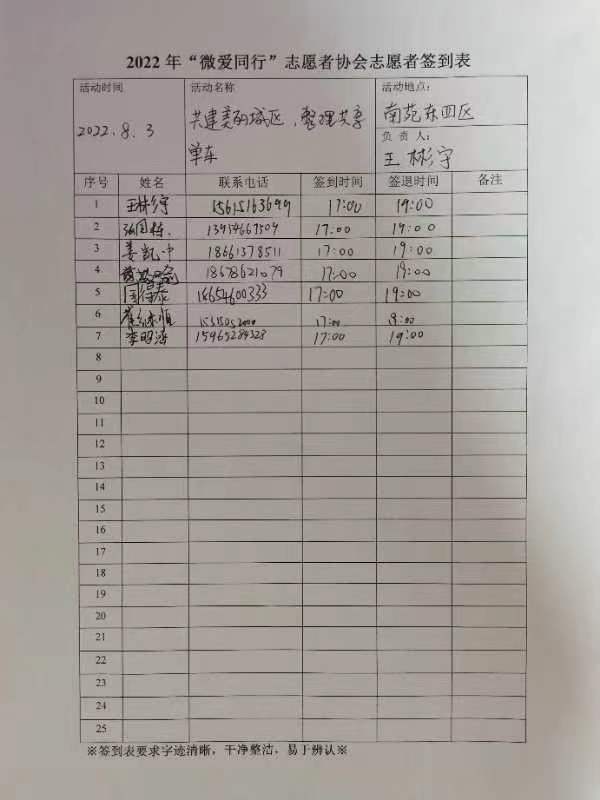 2022 年“微爱同行”志愿者协会志愿者签到表
活动时间 活动名称 活动地点:
2022.8.3 共建美丽城区、整理共享 南苑东四区
单车 负 责 人: 王彬宇
序号 姓名 联系电话 签到时间 签退时间 备注
1 王彬宇 17:00 19:00
2 张国栋 17:00 19:00
3 姜凯中 18661378511 17:00 19:00
4 18678621079 17:00 19:00
5 18654600333 17:00 19:00
6 17:00
7 李明海 15965284328 17:00 19:00
8
9
10
11
12
13
14
15
16
17
18
19
20
21
22
23
24
25
※签到表要求字迹清晰，干净整洁，易于辨认※